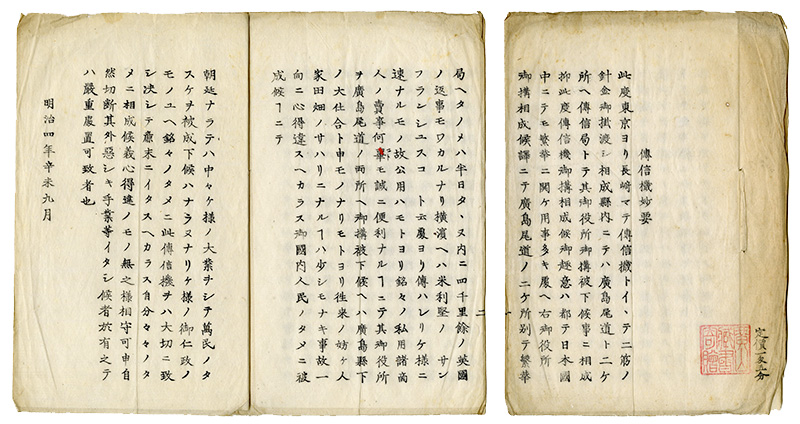 定價一匁五分
傳信機妙要
此度東京ヨリ長崎マテ傳信機トイヽテ二筋ノ
針金御掛渡シ相成縣内ニテハ廣島尾道ト二ケ
所ヘ傳信局トテ其御役所御搆被下候事ニ相成
抑此度傳信機御搆相成候御趣意ハ都テ日本國
中ニテモ繁華ニ ケ用事多キ處ヘ右御役所
御搆相成候譯ニテ廣島尾道ノ二ケ所別テ繁華
二
局ヘタノメハ半日タヽヌ内ニ四千里餘ノ英國
ノ返事モワカルナリ橫濱ヘハ米利堅ノ サン
フランシユスコ ト云處ヨリ傳ハレリケ様ニ
速ナルモノ故公用ハモトヨリ銘々ノ私用諸商
人ノ賣事何 モ誠ニ便利ナルヿニテ其御役所
ヲ廣島尾道ノ兩所ヘ御搆被下候ヘハ廣島縣下
ノ大仕合ト申モノナリモトヨリ徃来ノ妨ケ人
家田畑ノサハリニナルヿハ少シモナキ事故一
向ニ心得違スヘカラス御國内人民ノタメニ被
成候ヿニテ
朝廷ナラテハ中々ケ様ノ大業ヲシテ萬民ノタ
スケヲ被成下候ハナラヌナリケ様ノ御仁政ノ
モノユヘ銘々ノタメニ此傳信機ヲハ大切ニ致
シ决シテ麁末ニイタスヘカラス自分々々ノタ
メニ相成候義心得違ノモノ無之様相守可申自
然切断其外惡シキ手業等イタシ候者於有之テ
ハ嚴重處置可致者也
明治四年辛未九月